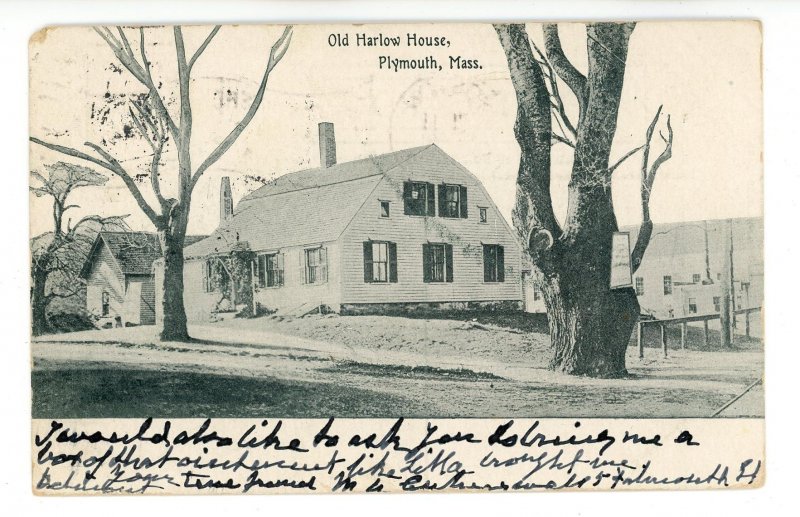 Old Harlow House,
Plymouth, Mass.
I would also like to ask you to bring me a
box of that ointment like Lilla brought me
your true friend M A 5 Falmouth St